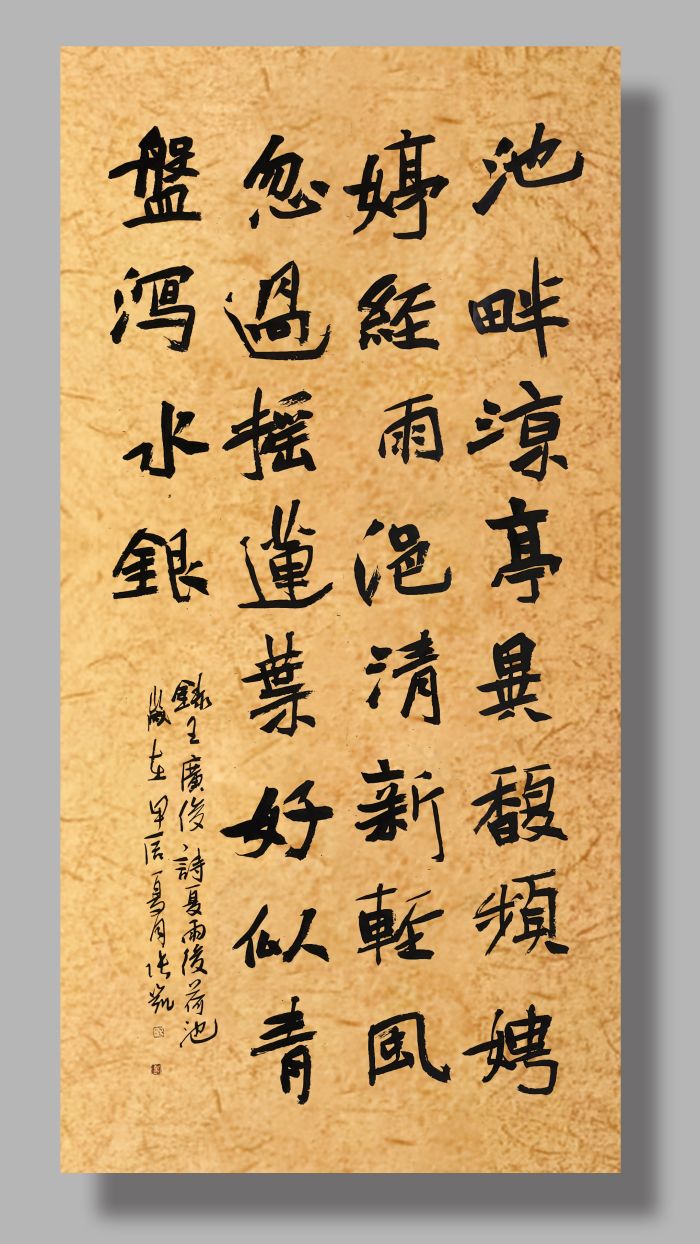 池畔涼亭異馥頻娉
婷經雨浥清新輕風
忽過摇蓮葉好似青
盤瀉水銀
錄王廣俊詩夏雨後荷池
歲在甲辰夏月張凱